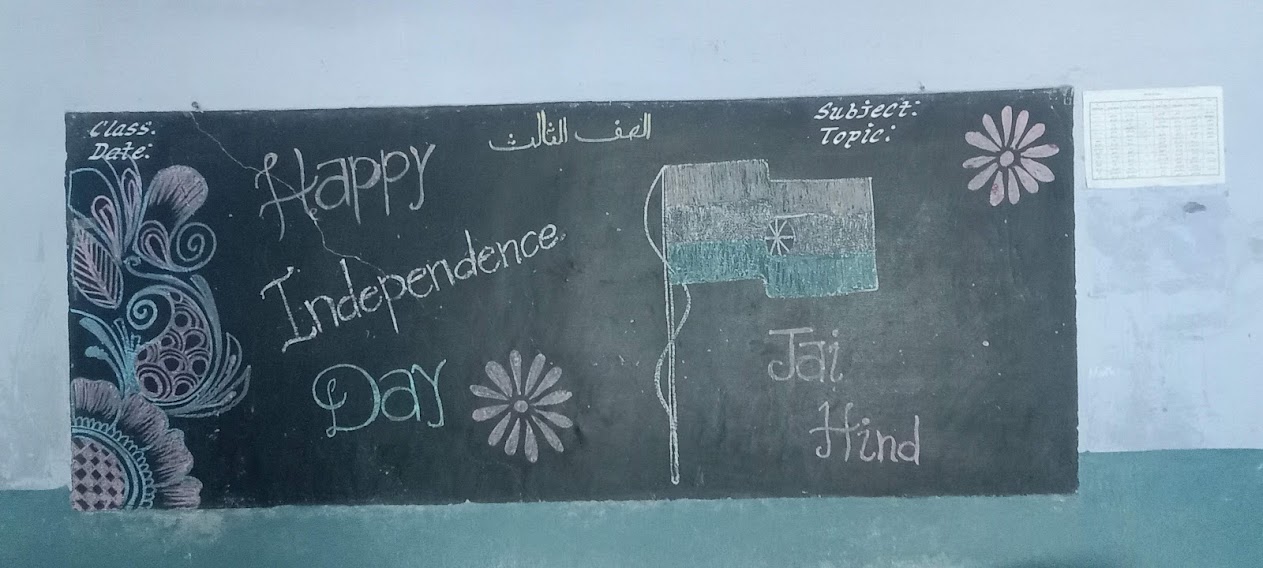 Class:
Date:
الصف الثالث
Subject:
Topic:
Happy
Independence
Day
Jai
Hind